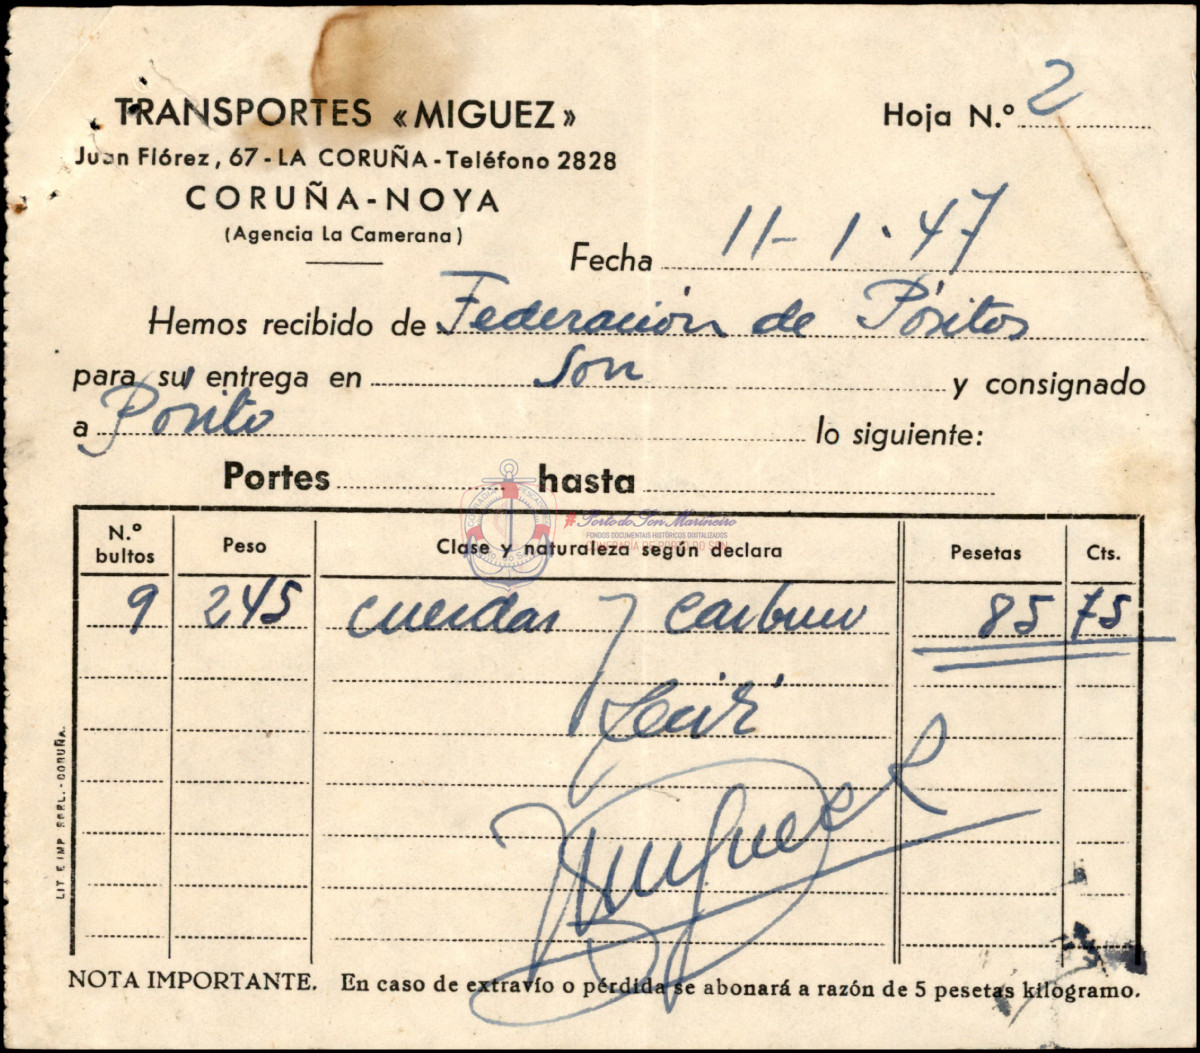 TRANSPORTES «MIGUEZ»
Hoja N.º 2
Juan Flórez, 67 - LA CORUÑA - Teléfono 2828
CORUÑA - NOYA
(Agencia La Camerana)
Fecha 11 - 1 . 47
Hemos recibido de Federación de Pósitos
para su entrega en Son y consignado
a Pósito lo siguiente:
Portes hasta
N.º bultos Peso Clase y naturaleza según declara Pesetas Cts.
#Porto do Son Mariñeiro
FONDOS DOCUMENTAIS HISTÓRICOS DIGITALIZADOS
CONFRARÍA DE PORTO DO SON
9 245 cuerdas y carburo 85 75
Recibí
Miguez
LIT. E IMP. ROEL.-CORUÑA.
NOTA IMPORTANTE. En caso de extravío o pérdida se abonará a razón de 5 pesetas kilogramo.